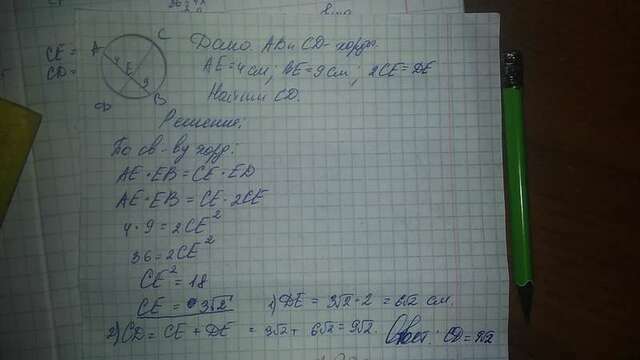 CE =
CD =
A
C
4
E
9
D
B
Дано: AB и CD - хорды.
AE = 4 см; BE = 9 см; 2CE = DE
Найти CD.
Решение:
По св-ву хорд:
AE · EB = CE · ED
AE · EB = CE · 2CE
4 · 9 = 2CE²
36 = 2CE²
CE² = 18
CE = 3√2
1) DE = 3√2 · 2 = 6√2 см.
2) CD = CE + DE = 3√2 + 6√2 = 9√2. Ответ: CD = 9√2